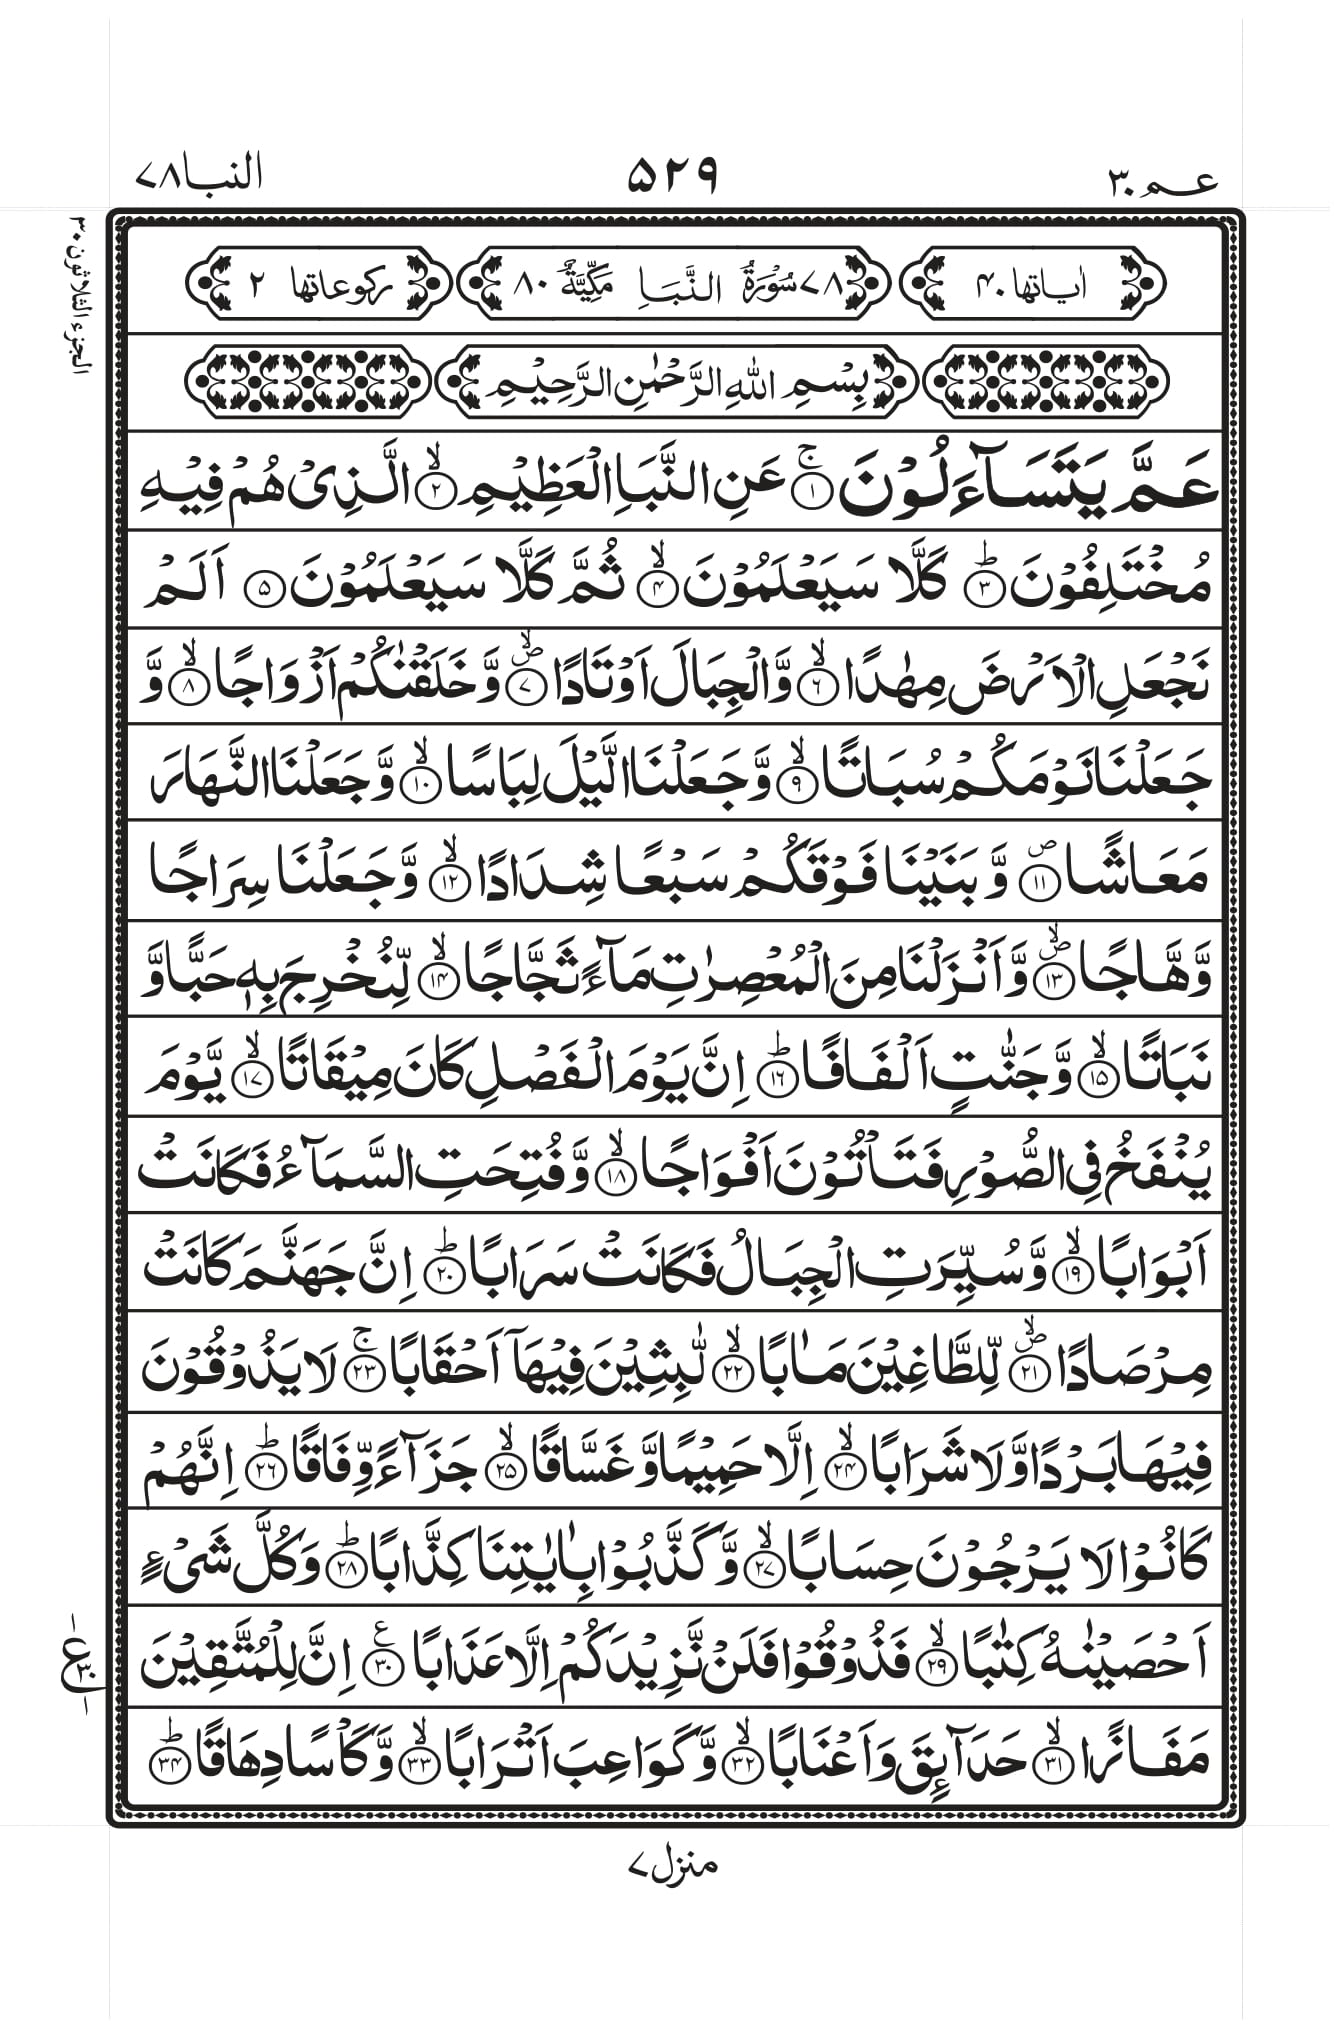 عم ۳۰
۵۲۹
النبا ۷۸
الجزء الثلاثون ۳۰
اٰیاتها ۴۰
۷۸ سُوْرَةُ النَّبَاِ مَكِّيَّةٌ ۸۰
ركوعاتها ۲
بِسْمِ اللّٰهِ الرَّحْمٰنِ الرَّحِيْمِ
عَمَّ يَتَسَآءَلُوْنَ ۚ‏﴿۱﴾ عَنِ النَّبَاِ الْعَظِيْمِ ۙ‏﴿۲﴾ الَّذِىْ هُمْ فِيْهِ
مُخْتَلِفُوْنَ ؕ‏﴿۳﴾ كَلَّا سَيَعْلَمُوْنَ ۙ‏﴿۴﴾ ثُمَّ كَلَّا سَيَعْلَمُوْنَ ﴿۵﴾ اَلَمْ
نَجْعَلِ الْاَرْضَ مِهٰدًا ۙ‏﴿۶﴾ وَّالْجِبَالَ اَوْتَادًا ۪ۙ‏﴿۷﴾ وَّخَلَقْنٰكُمْ اَزْوَاجًا ۙ‏﴿۸﴾ وَّ
جَعَلْنَا نَوْمَكُمْ سُبَاتًا ۙ‏﴿۹﴾ وَّجَعَلْنَا الَّيْلَ لِبَاسًا ۙ‏﴿۱۰﴾ وَّجَعَلْنَا النَّهَارَ
مَعَاشًا ۪‏﴿۱۱﴾ وَّبَنَيْنَا فَوْقَكُمْ سَبْعًا شِدَادًا ۙ‏﴿۱۲﴾ وَّجَعَلْنَا سِرَاجًا
وَّهَّاجًا ۪ۙ‏﴿۱۳﴾ وَّاَنْزَلْنَا مِنَ الْمُعْصِرٰتِ مَآءً ثَجَّاجًا ۙ‏﴿۱۴﴾ لِّنُخْرِجَ بِهٖ حَبًّا وَّ
نَبَاتًا ۙ‏﴿۱۵﴾ وَّجَنّٰتٍ اَلْفَافًا ؕ‏﴿۱۶﴾ اِنَّ يَوْمَ الْفَصْلِ كَانَ مِيْقَاتًا ۙ‏﴿۱۷﴾ يَّوْمَ
يُنْفَخُ فِى الصُّوْرِ فَتَاْتُوْنَ اَفْوَاجًا ۙ‏﴿۱۸﴾ وَّفُتِحَتِ السَّمَآءُ فَكَانَتْ
اَبْوَابًا ۙ‏﴿۱۹﴾ وَّسُيِّرَتِ الْجِبَالُ فَكَانَتْ سَرَابًا ؕ‏﴿۲۰﴾ اِنَّ جَهَنَّمَ كَانَتْ
مِرْصَادًا ۪ۙ‏﴿۲۱﴾ لِّلطَّاغِيْنَ مَاٰبًا ۙ‏﴿۲۲﴾ لّٰبِثِيْنَ فِيْهَاۤ اَحْقَابًا ۚ‏﴿۲۳﴾ لَا يَذُوْقُوْنَ
فِيْهَا بَرْدًا وَّلَا شَرَابًا ۙ‏﴿۲۴﴾ اِلَّا حَمِيْمًا وَّغَسَّاقًا ۙ‏﴿۲۵﴾ جَزَآءً وِّفَاقًا ؕ‏﴿۲۶﴾ اِنَّهُمْ
كَانُوْا لَا يَرْجُوْنَ حِسَابًا ۙ‏﴿۲۷﴾ وَّكَذَّبُوْا بِاٰيٰتِنَا كِذَّابًا ؕ‏﴿۲۸﴾ وَكُلَّ شَىْءٍ
اَحْصَيْنٰهُ كِتٰبًا ۙ‏﴿۲۹﴾ فَذُوْقُوْا فَلَنْ نَّزِيْدَكُمْ اِلَّا عَذَابًا ‏﴿۳۰﴾ع اِنَّ لِلْمُتَّقِيْنَ
۱ ع ۳۰ ۱
مَفَازًا ۙ‏﴿۳۱﴾ حَدَآئِقَ وَاَعْنَابًا ۙ‏﴿۳۲﴾ وَّكَوَاعِبَ اَتْرَابًا ۙ‏﴿۳۳﴾ وَّكَاْسًا دِهَاقًا ؕ‏﴿۳۴﴾
منزل ۷